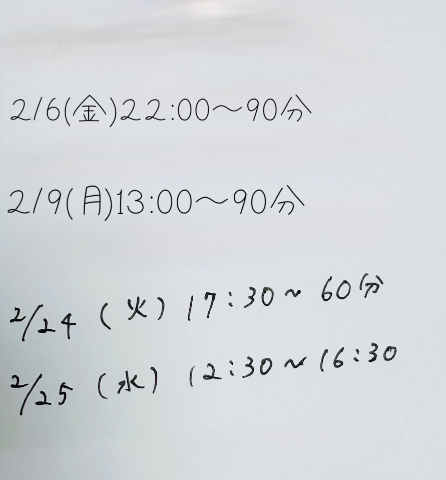 2/6(金)22:00〜90分
2/9(月)13:00〜90分
2/24(火)17:30〜60分
2/25(水)12:30〜16:30